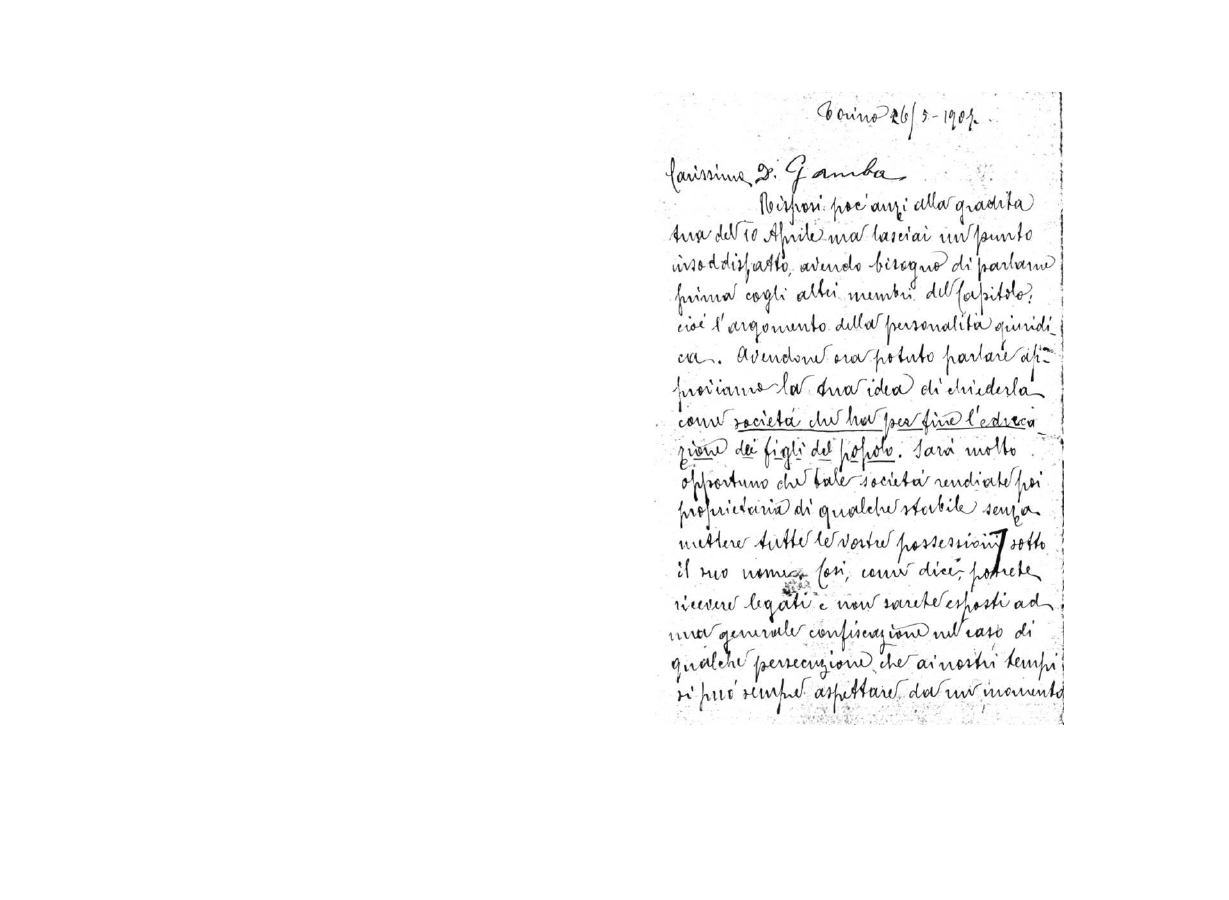 Torino 26/5-1907.
Carissimo D. Gamba
Risposi poc'anzi alla gradita
tua del 10 Aprile ma lasciai un punto
insoddisfatto, avendo bisogno di parlarne
prima cogli altri membri del Capitolo:
cioè l'argomento della personalità giuridi-
ca. Avendone ora potuto parlare ap-
proviamo la tua idea di chiederla
come società che ha per fine l'educa-
zione dei figli del popolo. Sarà molto
opportuno che tale società rendiate poi
proprietaria di qualche stabile senza
mettere tutte le vostre possessioni sotto
il suo nome. Così, come dici, potrete
ricevere legati e non sarete esposti ad
una generale confiscazione nel caso di
qualche persecuzione che ai nostri tempi
si può sempre aspettare da un momento